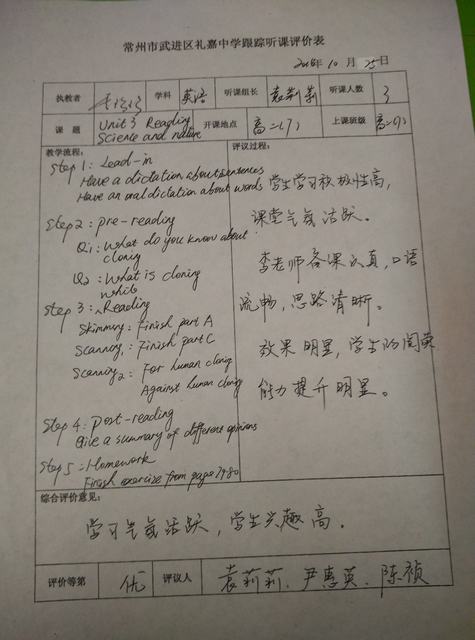 常州市武进区礼嘉中学跟踪听课评价表
2016年10月25日
执教者 学科 英语 听课组长 袁莉莉 听课人数 3
课题 Unit 3 Reading Science and nature 开课地点 高二(7) 上课班级 高二(7)
教学流程:
Step 1: Lead-in
Have a dictation about sentences
Have an oral dictation about words
Step 2: pre-reading
Q1: What do you know about
cloning
Q2: What is cloning
while
Step 3: Reading
Skimming: Finish part A
Scanning1: Finish part C
Scanning2: For human cloning
Against human cloning
Step 4: Post-reading
Give a summary of different opinions
Step 5: Homework
Finish exercise from page
评议过程:
学生学习积极性高,
课堂气氛活跃。
李老师备课认真,口语
流畅,思路清晰。
效果明显,学生的阅读
能力提升明显。
综合评价意见:
学习气氛活跃,学生兴趣高。
评价等第 优 评议人 袁莉莉、尹惠英、陈祯